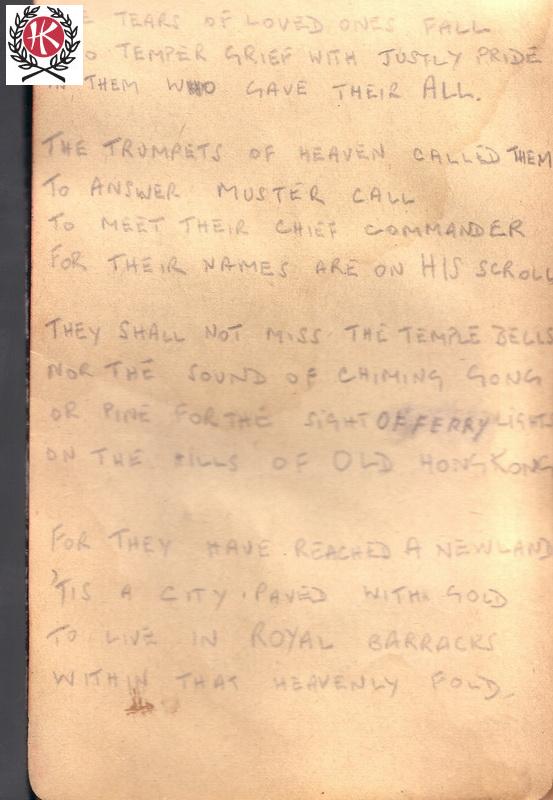 HK
TEARS OF LOVED ONES FALL
TO TEMPER GRIEF WITH JUSTLY PRIDE
IN THEM WHO GAVE THEIR ALL.
THE TRUMPETS OF HEAVEN CALLED THEM
TO ANSWER MUSTER CALL
TO MEET THEIR CHIEF COMMANDER
FOR THEIR NAMES ARE ON HIS SCROLL
THEY SHALL NOT MISS THE TEMPLE BELLS
NOR THE SOUND OF CHIMING GONG
OR PINE FOR THE SIGHT OF FERRY LIGHTS
ON THE HILLS OF OLD HONG KONG
FOR THEY HAVE REACHED A NEW LAND
'TIS A CITY PAVED WITH GOLD
TO LIVE IN ROYAL BARRACKS
WITHIN THAT HEAVENLY FOLD